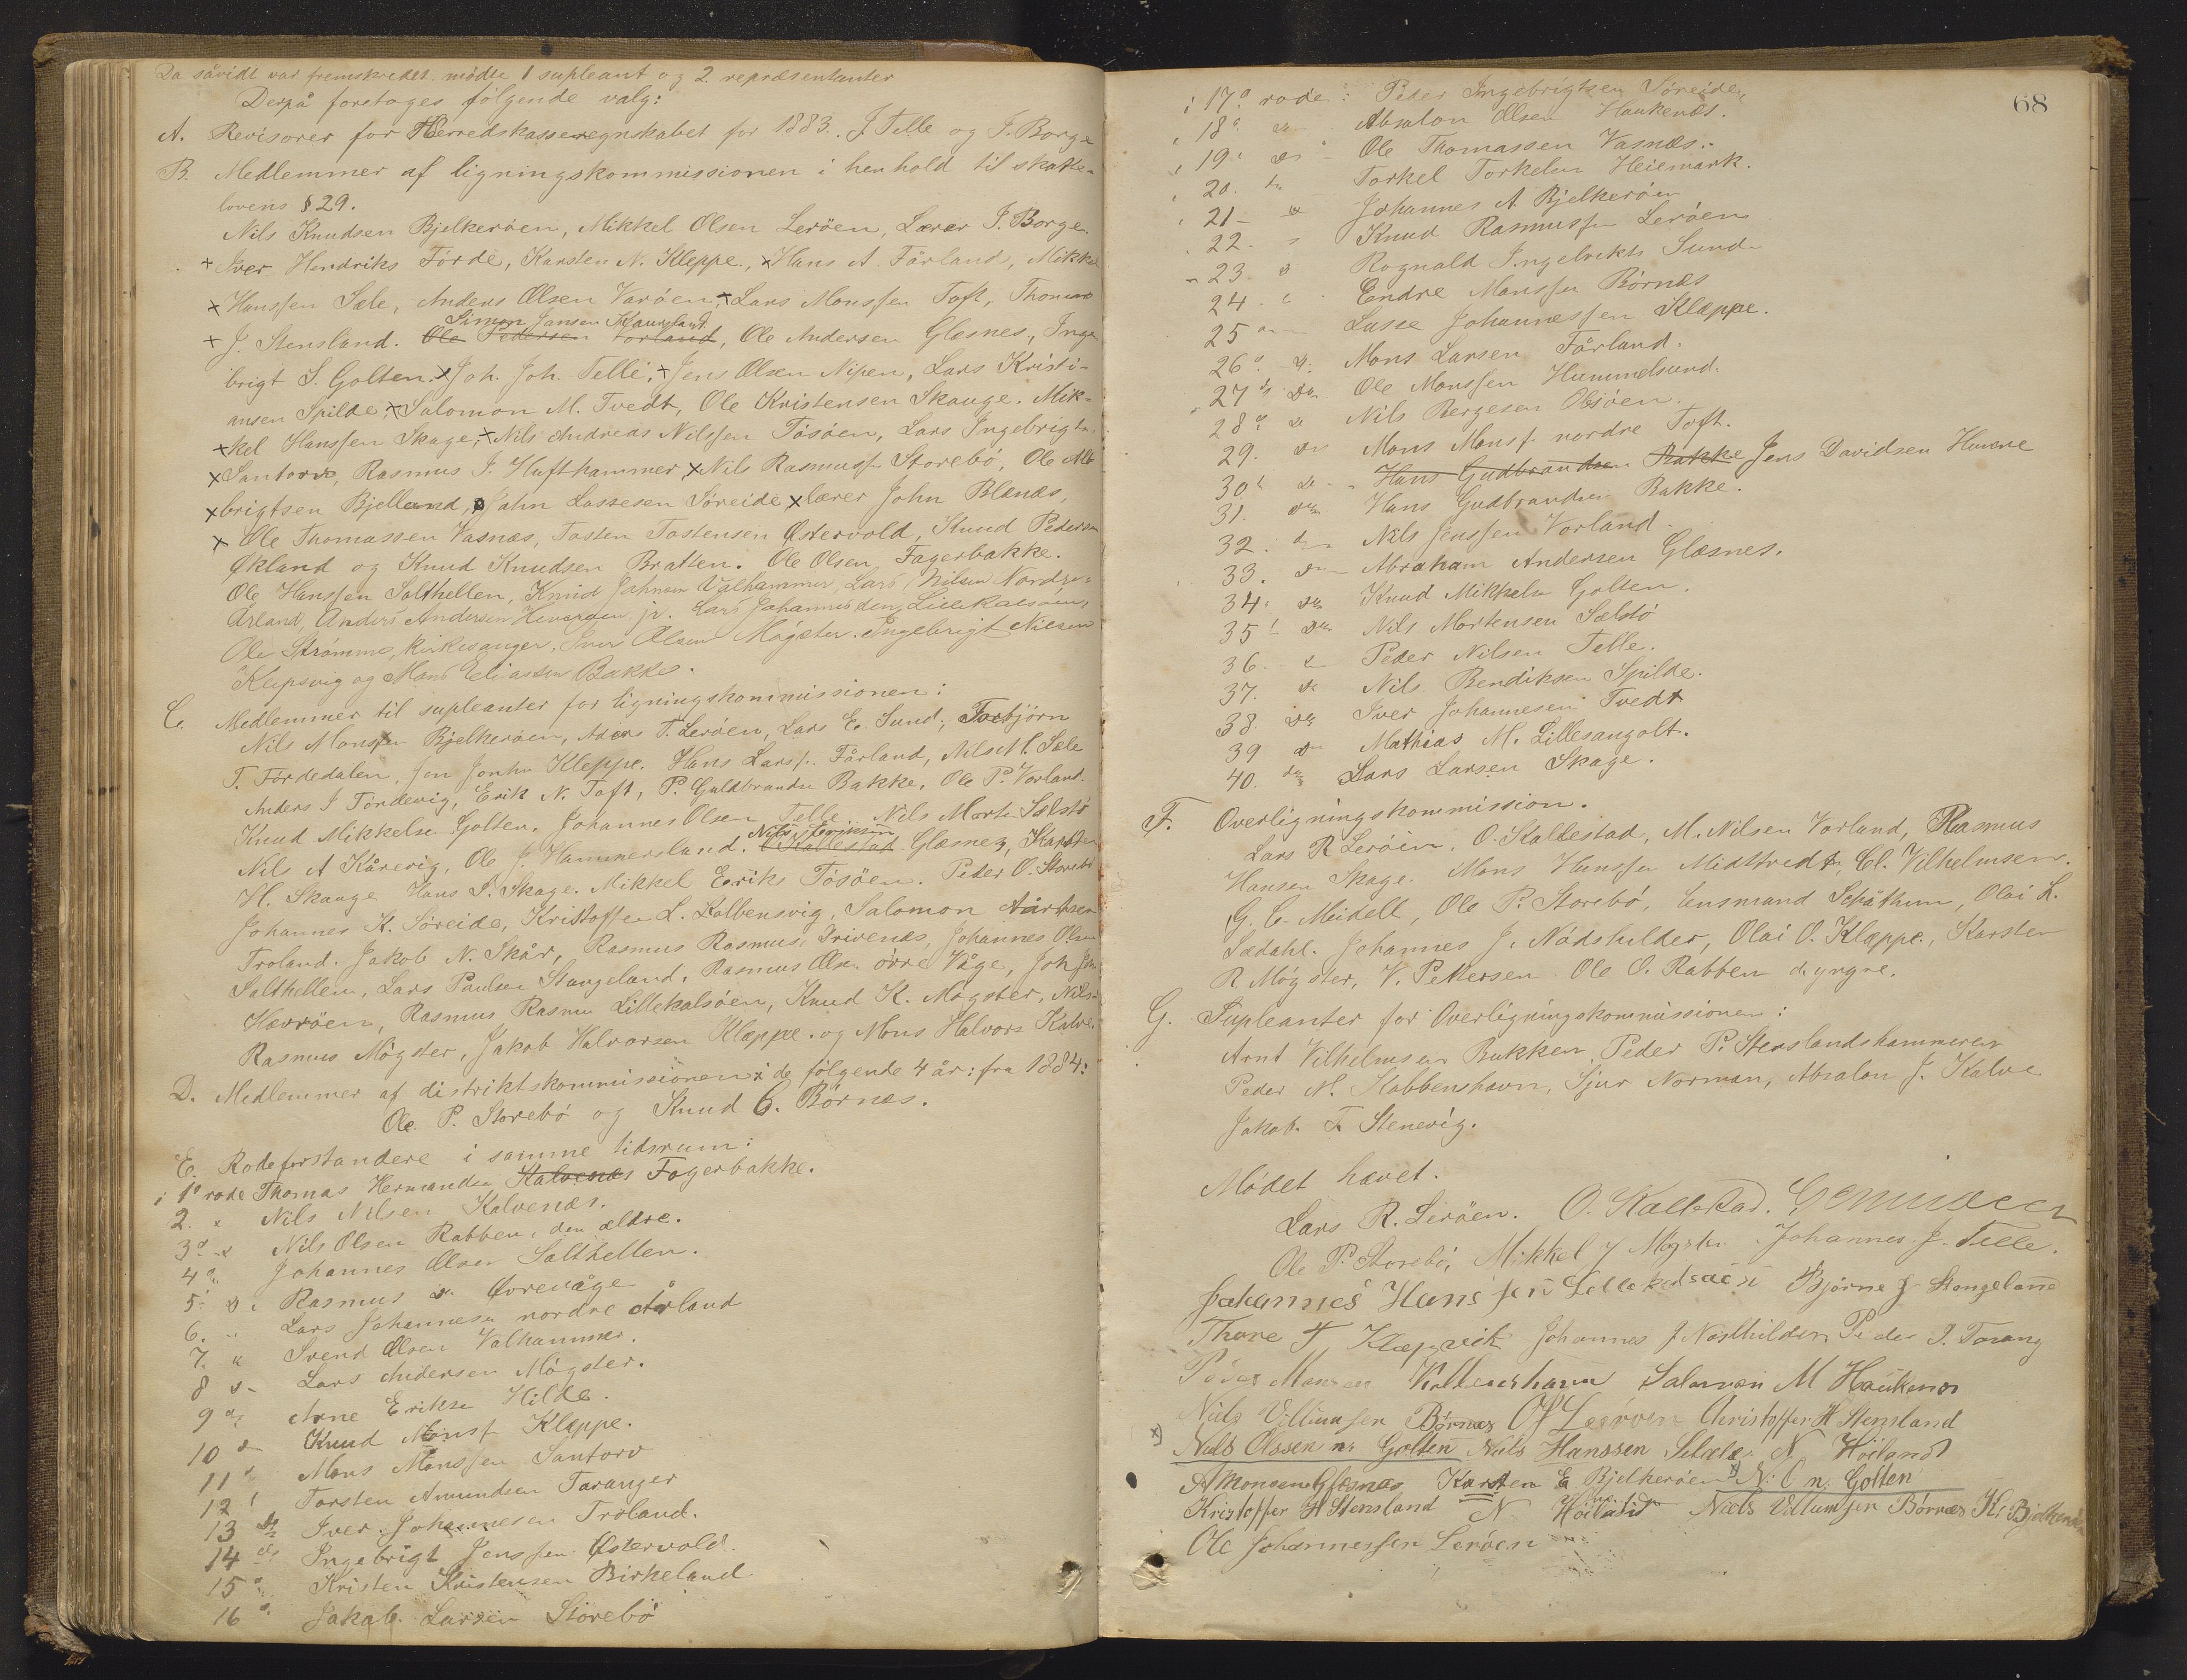 Da såvidt var fremskredet mödte 1 supleant og 2 repræsentanter
Derpå foretoges følgende valg:
A. Revisorer for Herredskasseregnskabet for 1883. J. Telle og I. Borge
B. Medlemmer af ligningskommissionen i henhold til skatte-
lovens § 29.
Nils Knudsen Bjelkeröen, Mikkel Olsen Leröen, Lærer I. Borge.
+ Iver Hendriks Förde, Karsten N. Kleppe, x Hans A. Fårland, Mikkel
x Hanssen Sele, Anders Olsen Varöen, x Lars Monssen Toft, Thomas
Simon Jansen Kausland
+ J. Stensland. Ole Pedersen Vorland, Ole Andersen Glesnes, Inge
brigt S. Golten. x Joh. Joh. Telle, + Jens Olsen Nipen, Lars Kristi-
ansen Spilde, x Salomon M. Tvedt, Ole Kristensen Skauge. Mik-
x kel Hanssen Skage, x Nils Andreas Nilssen Tösöen, Lars Ingebrigts.
x Santorv, Rasmus J. Hufthammer, x Nils Rasmuss. Storebö, Ole Alb
x brigtsen Bjelland, John Lassesen Söreide x lærer John Blænæs,
x Ole Thomassen Vasnæs, Tosten Tostensen Østervold, Knud Pedersen
Økland og Knud Knudsen Bratten. Ole Olsen Fagerbakke.
Ole Hanssen Salthellen, Knud Johnsen Valhammer, Lars Nilsen Nordre
Årland, Anders Andersen Hevröen jr. Lars Johannesen Lillekalsöen,
Ole Strömme, kirkesanger, Iver Olsen Mögster. Ingebrigt Nilsen
Klepsvig og Mons Eliassen Bakke.
C. Medlemmer til supleanter for ligningskommissionen:
Nils Monssen Bjelkeröen, Anders T. Leröen, Lars E. Sund, Torbjörn
T. Fördedalen, Jon Jonsen Kleppe. Hans Larss. Fårland, Nils M. Sele
Anders J Fördevig, Erik N. Toft, P. Guldbrandsen Bakke, Ole P. Vorland.
Knud Mikkelse Golten. Johannes Olsen Telle. Nils Morten Sælstö
Nils Eriksen
Nils A Kårevig, Ole J. Hammersland. O Kallestad Glæsnes, Karsten
H. Skauge Hans S. Skage. Mikkel Eriks Tösöen. Peder O. Storebö
Johannes K. Söreide, Kristoffer L. Kolbensvig, Salomon
Troland. Jakob N. Skår, Rasmus Rasmus. Drivenes, Johannes Olsen
Salthellen, Lars Paulsen Stangeland. Rasmus Olsen övre Våge, Joh Joh
Hevröen, Rasmus Rasmus Lillekalsöen, Knud K. Mögster, Nils
Rasmus Mögster, Jakob Halvorsen Klæppe. og Mons Halvors Kalve.
D. Medlemmer af distriktskommissionen i de følgende 4 år: fra 1884:
Ole P. Storebö og Knud C. Börnæs.
E. Rodeforstandere i samme tidsrum:
i 1ste rode Thomas Hermandsen Kalvenæs Fagerbakke.
2. " Nils Nilsen Kalvenæs.
3d " Nils Olsen Rabben, den ældre.
4d Johannes Olsen Salthellen.
5. d. Rasmus O. Övrevåge
6. " Lars Johannesen nordre Årland
7. " Svend Olsen Valhammer.
8 d Lars Andersen Mögster.
9 d Arne Eriksen Hilde.
10 d Knud Monss. Klæppe.
11 Mons Monssen Santorv
12 Torsten Amundsen Taranger
13 do Iver Johannesen Troland.
14 do Ingebrigt Jenssen Østervold.
15 Kristen Kristensen Birkeland
16 Jakob Larsen Storebö
68
i 17d rode: Peder Ingebrigtsen Söreide
18d d Absalon Olsen Haukenæs.
19d do Ole Thomassen Vasnæs.
20. do Torkel Torkelsen Heiemark.
21 - " Johannes A. Bjelkeröen
22. " Knud Rasmussen Leröen
23 d Rognald Ingebrikts Sund
24. " Endre Monssen Börnæs
25 Lasse Johannessen Klæppe.
26d d. Mons Larsen Fårland.
27d do Ole Monssen Hummelsund.
28d d Nils Bergesen Algröen.
29. do Mons Monss. nordre Toft.
30d d Hans Gudbrandsen Bakke Jens Davidsen
31. do Hans Gudbrandsen Bakke.
32. d Nils Jenssen Vorland.
33. do Abraham Andersen Glæsnes.
34. do Knud Mikkelsen Golten.
35 do Nils Mortensen Sælstö
36. d Peder Nilsen Telle.
37. d Nils Bendiksen Spilde.
38. do Iver Johannesen Tvedt
39 d Mathias M. Lillesangolt.
40. do Lars Larsen Skage.
F. Overligningskommission.
Lars R Leröen, O. Kallestad, M. Nilsen Vorland, Rasmus
Hansen Skage. Mons Hanssen Midttvedt, Cl. Vilhelmsen.
G. C. Meidell, Ole P. Storebö, Lensmand Schåthun, Olai L.
Sædahl. Johannes J. Nödshilder, Olai O. Klæppe, Karsten
R Mögster, V. Pettersen. Ole O. Rabben d. yngre.
G. Supleanter for Overligningskommissionen:
Arnt Vilhelmsen Bukken, Peder P. Stenslandshammeren
Peder M. Kobbenshavn, Sjur Norman, Absalon J. Kalve
Jakob T. Stenevig.
Mödet hævet.
Lars R. Leröen. O. Kallestad.
Ole P. Storebö, Mikkel J Mögster. Johannes J. Telle.
Johannes Hanssen Lillekalsöen Bjørne J Stangeland
Thore T Klæpsvik Johannes J Nöslhilder Peder J. Tarang
Peder Monsen Kobbenshavn Salomon M Haukenæs
Niels Villumsen Börnæs O J Leröven Christoffer H Stensland
x) Niels Olssen n. Golten Niels Hanssen Selstø. N Höiland
A Monsen Glesnæs Karsten E Bjelkeröen x) N. O n. Golten
Kristoffer H Stensland N Höiland Niels Villumsen Börnæs K. Bjelkeröen
Ole Johannessen Leröen